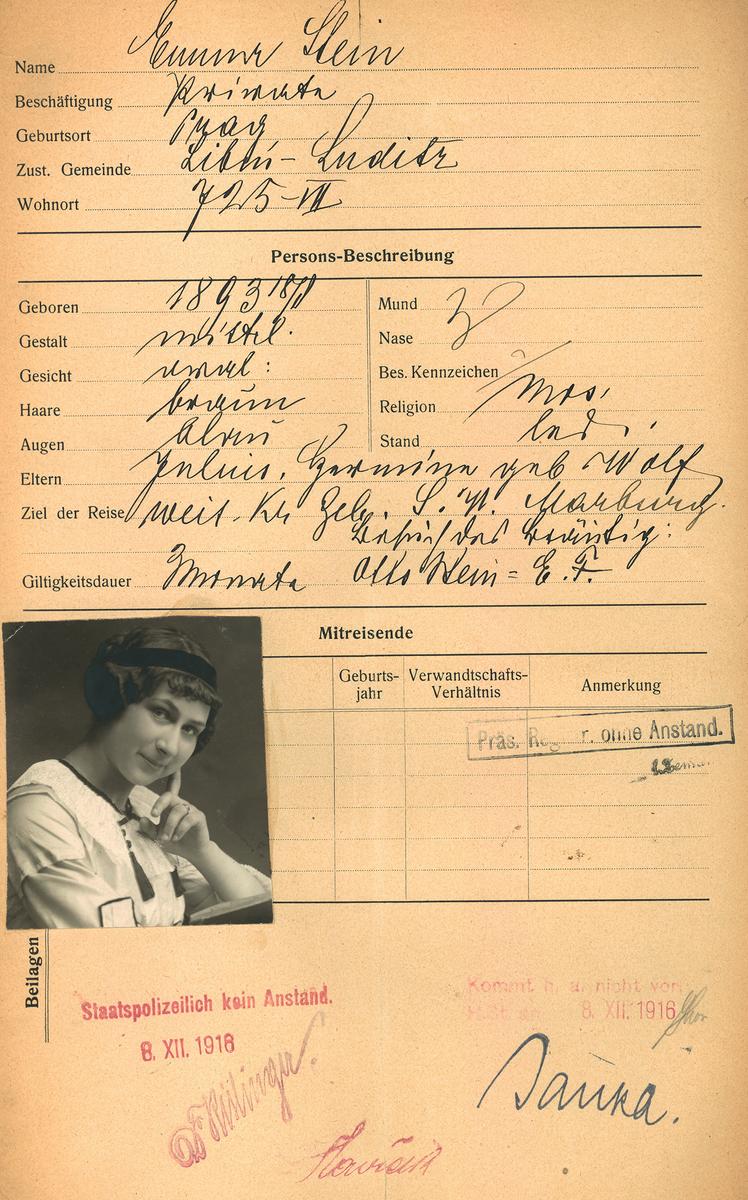 Name Emma Stein
Beschäftigung Private
Geburtsort Prag
Zust. Gemeinde Luditz
Wohnort 725-VII
Persons-Beschreibung
Geboren 1893 18/
Gestalt mittel.
Gesicht oval:
Haare braun
Augen blau
Mund
Nase
Bes. Kennzeichen
Religion mos.
Stand led.
Eltern Julius, Hermine geb Wolf
Ziel der Reise Marburg.
Besuch des Bräutig:
Giltigkeitsdauer 3 Monate Otto Stein = E. F.
Mitreisende
Geburts-jahr Verwandtschafts-Verhältnis Anmerkung
Präs. r. ohne Anstand.
Beilagen
Staatspolizeilich kein Anstand.
8. XII. 1916
Kommt h. a. nicht vor.
8. XII. 1916